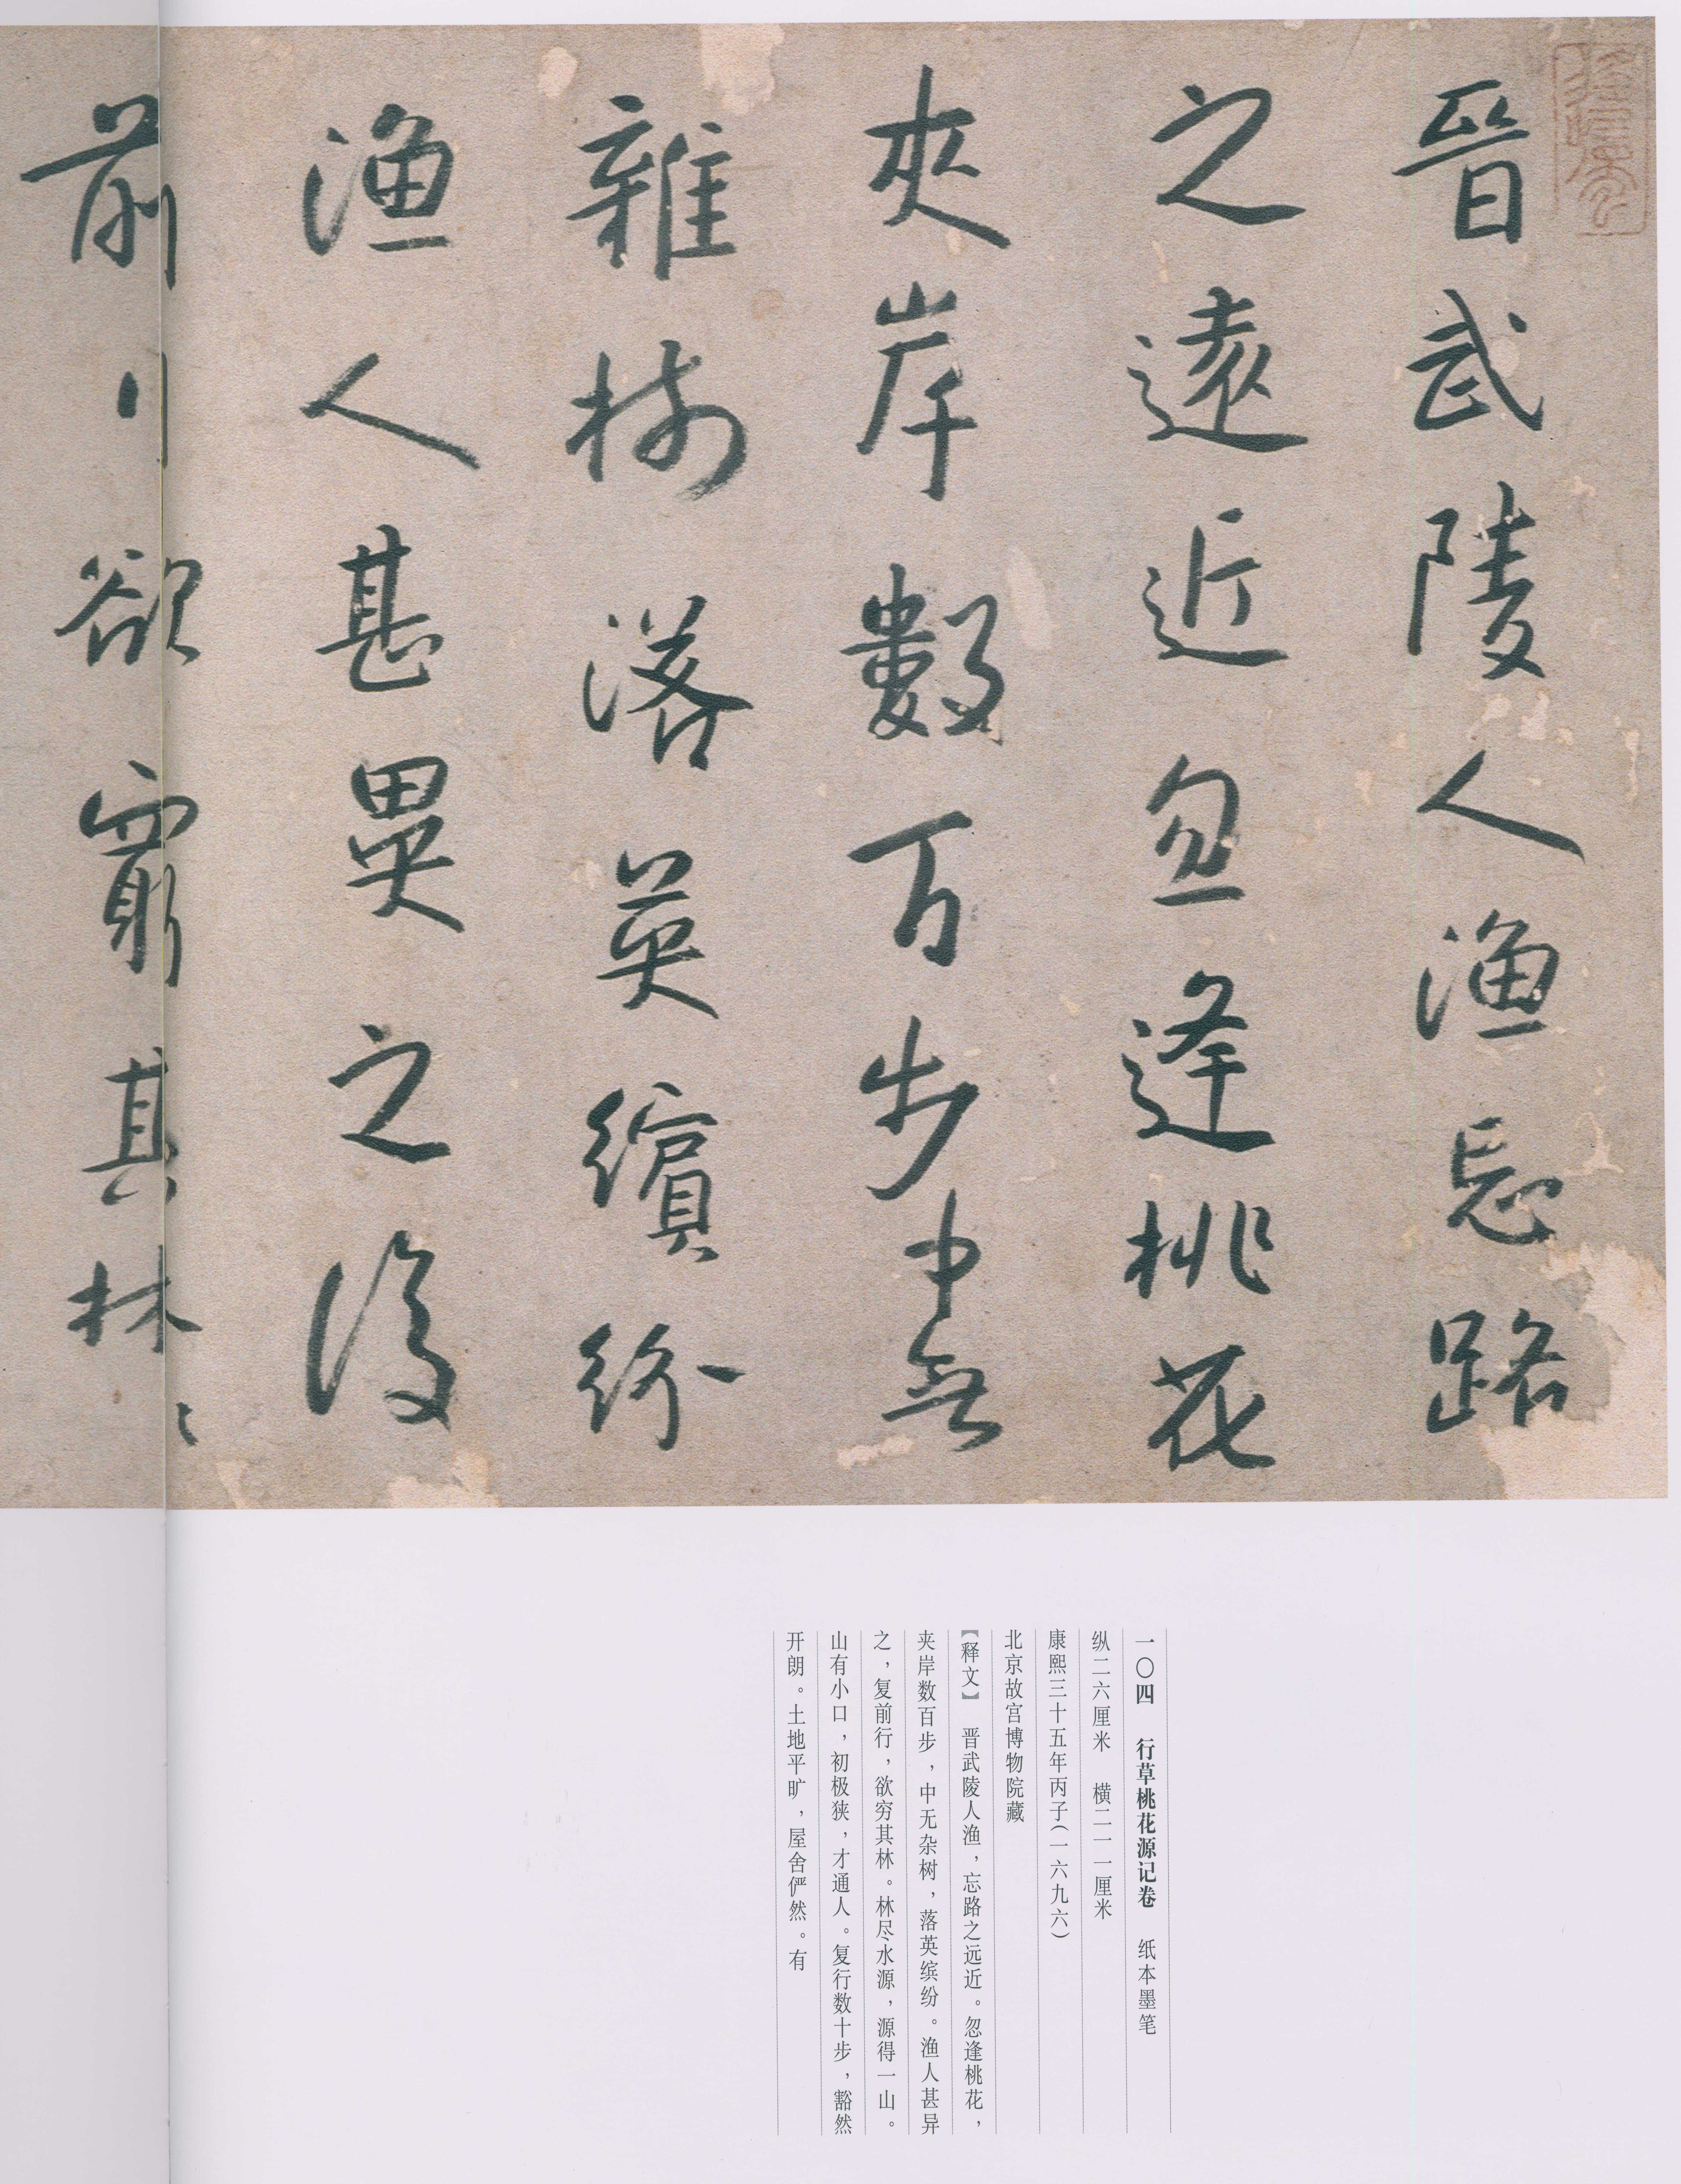 晉武陵人漁忘路
之遠近忽逢桃花
夾岸數百步中無
雜樹落英繽紛
漁人甚異之復
前行欲窮其林〻
一〇四　行草桃花源记卷　纸本墨笔
纵二六厘米　横二一一厘米
康熙三十五年丙子（一六九六）
北京故宫博物院藏
【释文】　晋武陵人渔，忘路之远近。忽逢桃花，
夹岸数百步，中无杂树，落英缤纷。渔人甚异
之，复前行，欲穷其林。林尽水源，源得一山。
山有小口，初极狭，才通人。复行数十步，豁然
开朗。土地平旷，屋舍俨然。有